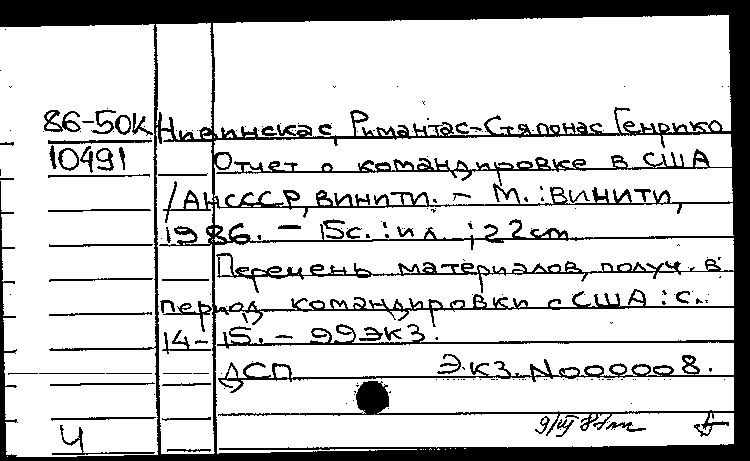 86-50К Нивинскас, Римантас-Стяпонас Генрико
10491 Отчет о командировке в США
/АНСССР, ВИНИТИ. - М. : ВИНИТИ,
1986. - 15с. : ил. ; 22cm
Перечень материалов, получ. в
период командировки с США : с.
14-15. - 99экз.
ДСП Экз. N000008.
Ч